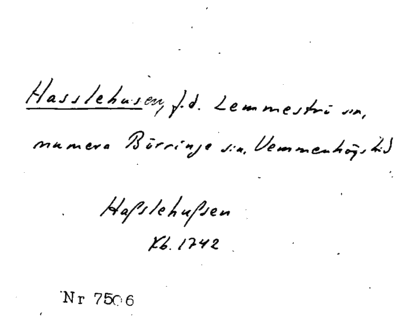 Hasslehusen, f.d. Lemmeströ sn,
numera Börringe sn, Vemmenhögs hd
Haßlehußen
Kb. 1742
Nr 7506